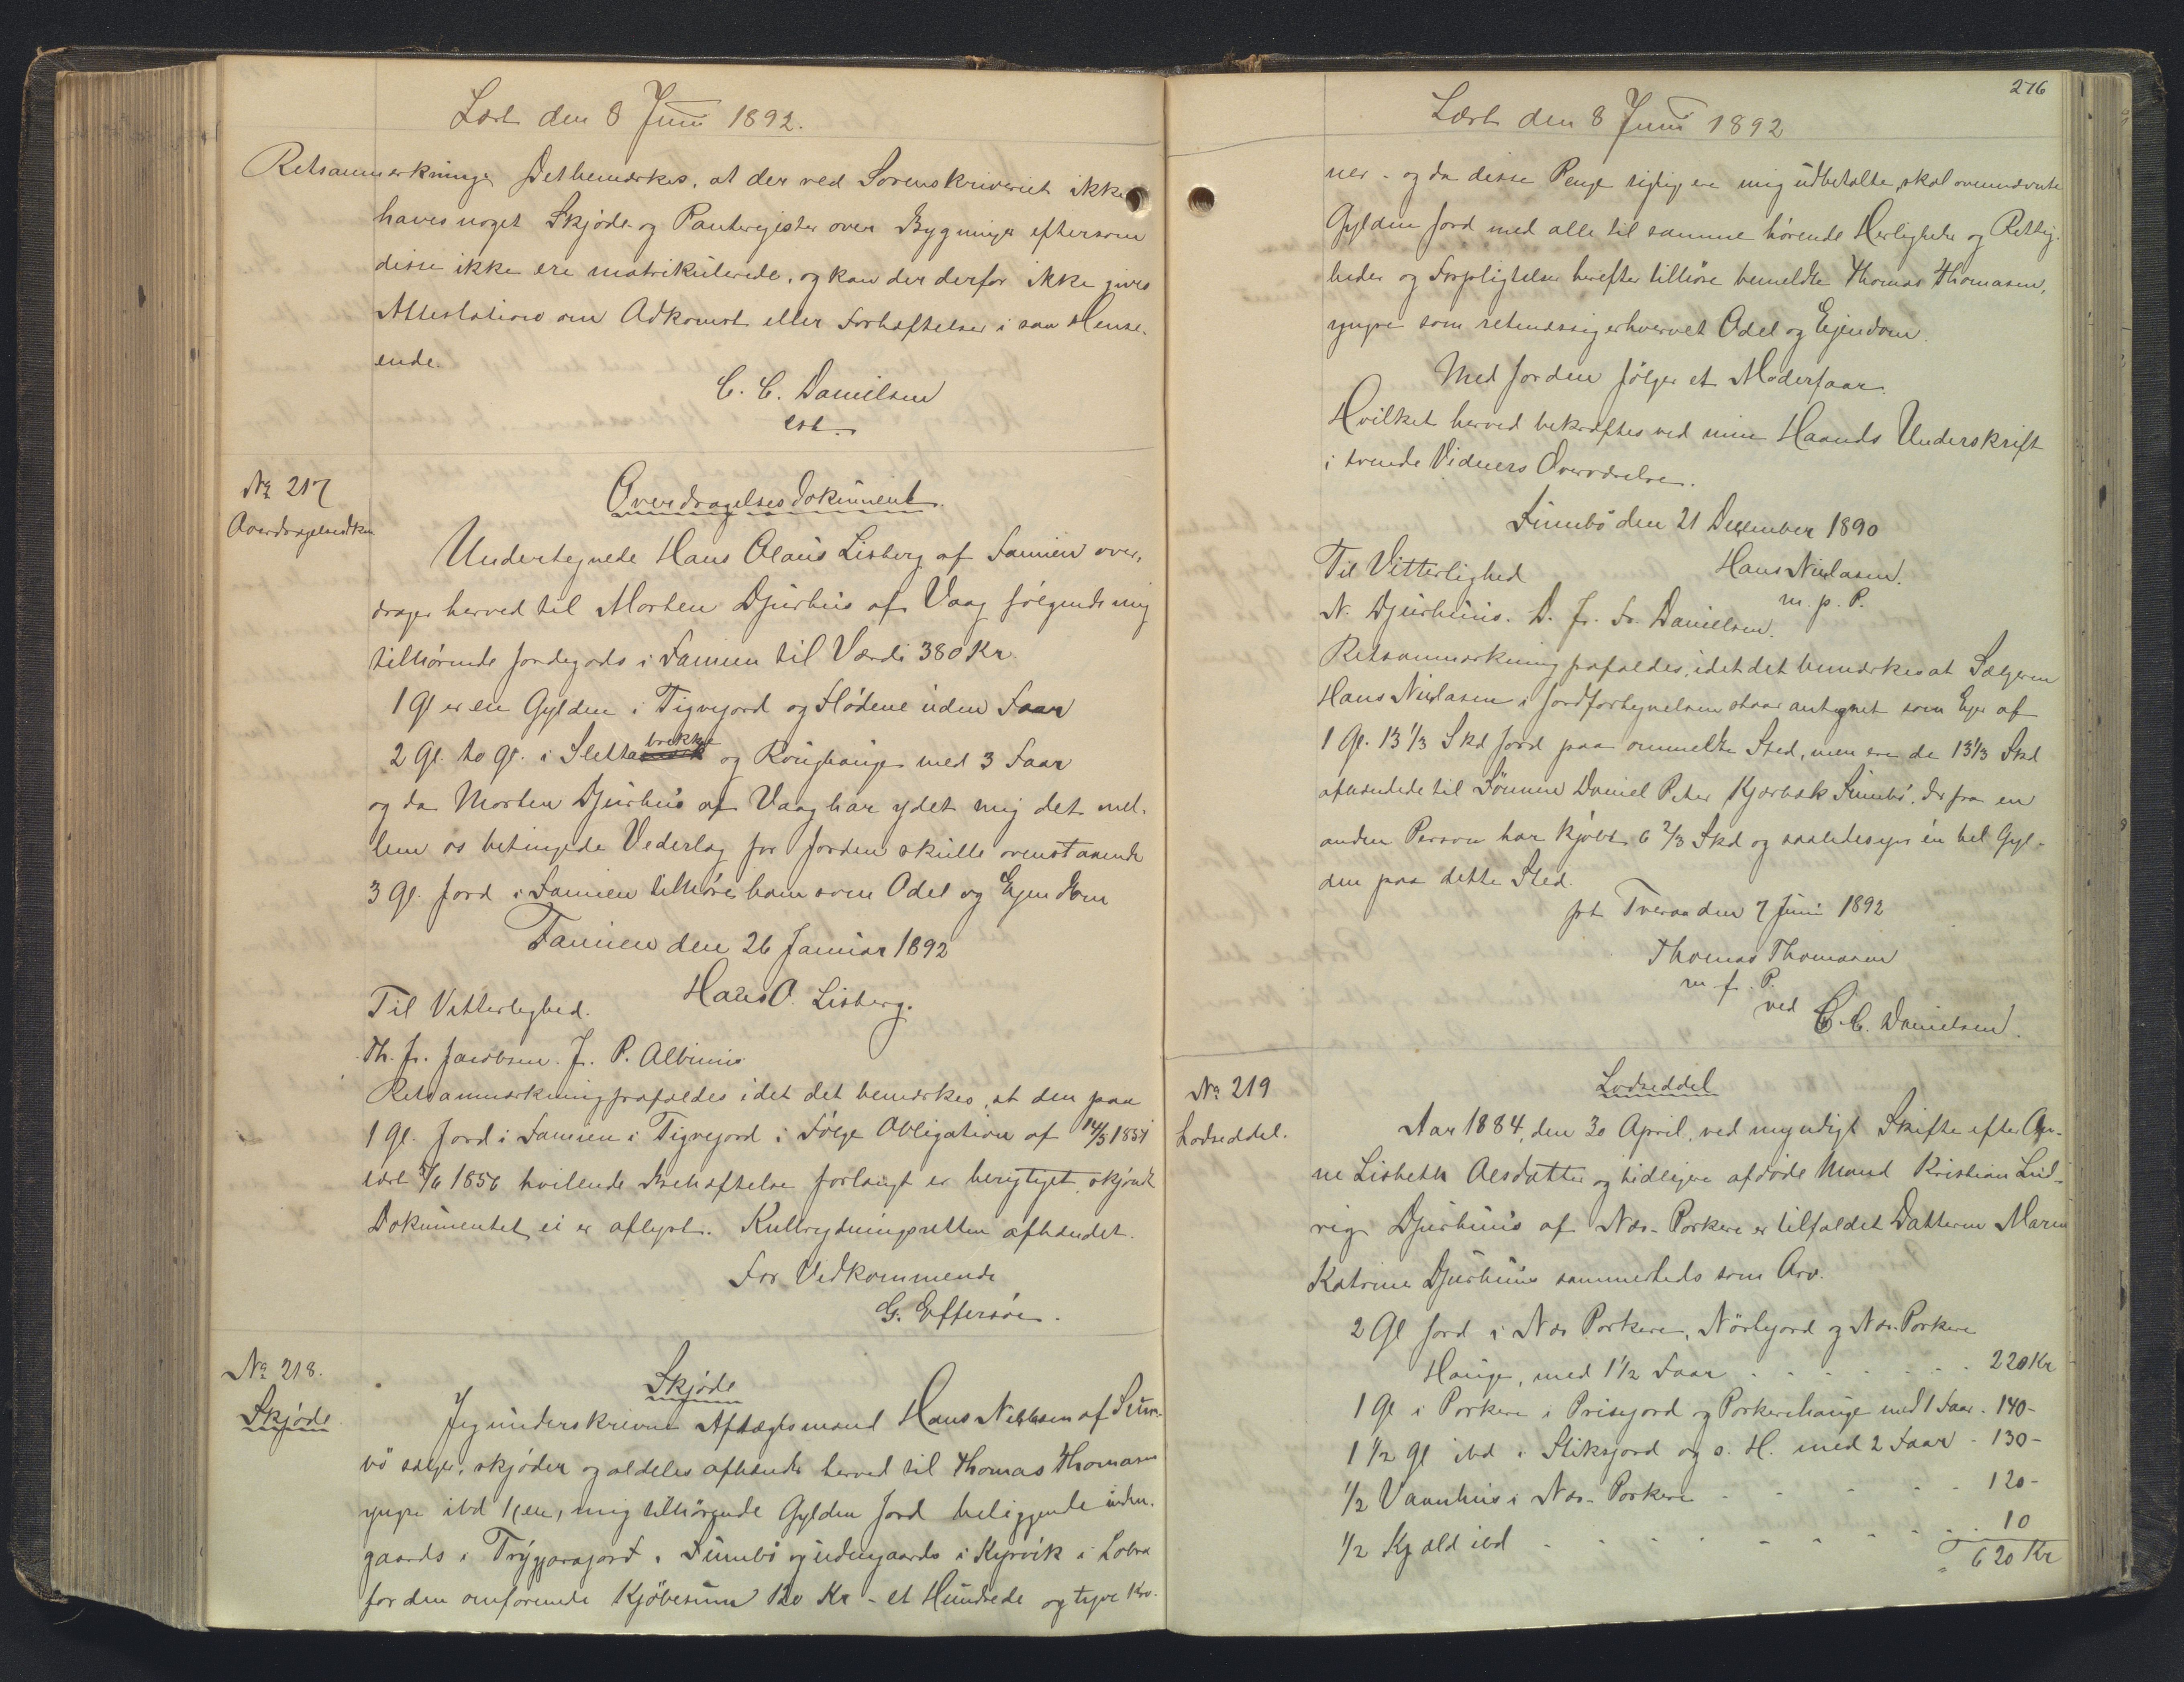 Læst den 8 Juni 1892.
Retsanmærkninge Det bemærkes, at der ved Sorenskriveriet ikke
haves noget Skjøde- og Panteregister over Bygninger eftersom
disse ikke ere matrikulerede, og kan der derfor ikke gives
Attestation om Adkomst eller Forhæftelser i saa Hense-
ende.
C. C. Danielsen
cst.
No 217
Overdragelsesdkm
Overdragelsesdokument.
Undertegnede Hans Olaus Lisberg af Famien over-
drager herved til Morten Djurhus af Vaag følgende mig
tilhørende Jordegods i Famien til Værdi 380 Kr.
1 Gl er en Gylden i Tigvejord og Flødene uden Faar
2 Gl. to Gl. i Slettabrekke og Røughauge med 3 Faar
og da Morten Djurhus af Vaag har ydet mig det mel-
lem os betingede Vederlag for Jorden skulle ovenstaaende
3 Gl. Jord i Famien tilhøre ham som Odel og Ejendom
Famien den 26 Januar 1892
Til Vitterlighed. Hans O. Lisberg.
Th. Jr. Jacobsen. J. P. Albinus
Retsanmærkning frafaldes idet det bemærkes, at den paa
1 Gl. Jord i Famien i Tigvejord i Følge Obligation af 14/5 1851
læst 5/6 1856 hvilende Behæftelse forlængst er berigtiget, skjøndt
Dokumentet ei er aflyst. Kulbrydningsretten afhændet.
For Vedkommende
G. Effersøe.
No 218.
Skjøde
Skjøde
Jeg underskrevne Aftægtsmand Hans Niclasen af Sum-
bø sælger, skjøder og aldeles afhænder herved til Thomas Thomasen
yngre ibd 1 (en) mig tilhørende Gylden Jord beliggende inden-
gaards i Tryggarajord i Sumbø og udengaards i Kyrvik i Lobra
for den omforenede Kjøbesum 120 Kr - et Hundrede og tyve Kro-
276
Læst den 8 Juni 1892
ner - og da disse Penge rigtig ere mig udbetalte, skal ovennævnte
Gylden Jord med alle til samme hørende Herligheder og Rettig-
heder og Forpligtelser herefter tilhøre bemeldte Thomas Thomasen,
yngre som retmæssig erhvervet Odel og Ejendom.
Med Jorden følger et Moderfaar.
Hvilket herved bekræftes ved min Haands Underskrift
i tvende Vidners Overværelse.
Sumbø den 21 December 1890
Til Vitterlighed Hans Niclasen.
m. p. P.
N. Djurhuus. D. J. Fr. Danielsen.
Retsanmærkning frafaldes, idet det bemærkes at Sælgeren
Hans Niclasen i Jordfortegnelsen staar antegnet som Ejer af
1 Gl. 13 1/3 Skd Jord paa ommeldte Sted, men ere de 13 1/3 Skd
afhændede til Sønnen Daniel Peter Kjærbæk Sumbø, der fra en
anden Person har kjøbt 6 2/3 Skd og saaledes ejer én hel Gyl-
den paa dette Sted.
pt Tveraa den 7 Juni 1892
Thomas Thomasen
m. f. P.
ved C. C. Danielsen.
No 219
Lodseddel.
Lodseddel
Aar 1884, den 30 April, ved myndigt Skifte efter An-
ne Lisbeth Olesdatter og tidligere afdøde Mand Kristian Lud-
vig Djurhuus af Næs-Porkere er tilfaldet Datteren Maren
Katrine Djurhuus sammesteds som Arv.
2 Gl Jord i Næs Porkere, Nørlejord og Næs-Porkere
Hauge, med 1 1/2 Faar 220 Kr
1 Gl i Porkere i Prisejord og Porkerehauge med 1 Faar. 140 -
1 1/2 Gl ibd i Sliksjord og s. H. med 2 Faar - 130 -
1/2 Vaanhus i Næs-Porkere 120 -
1/2 Kjald ibd 10
620 Kr